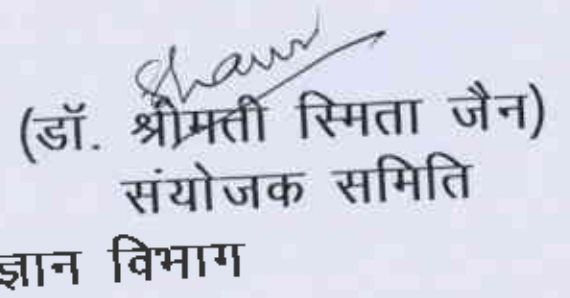 (डॉ. श्रीमती स्मिता जैन)
संयोजक समिति
ज्ञान विभाग